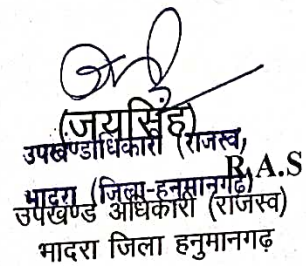 (जयसिंह)
उपखण्डाधिकारी (राजस्व,
R.A.S
भादरा (जिला-हनुमानगढ़)
उपखण्ड अधिकारी (राजस्व)
भादरा जिला हनुमानगढ़